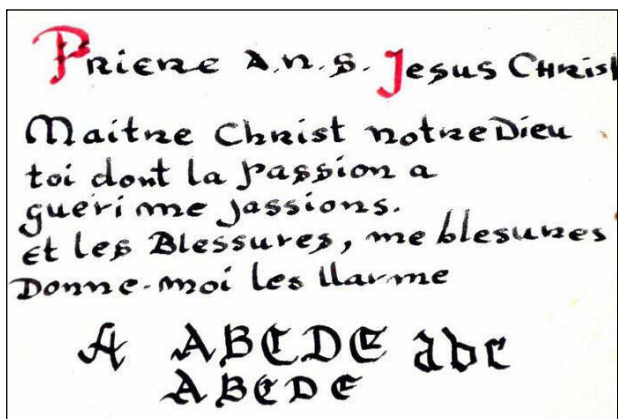 Priere a.n.s. Jesus Christ
Maitre Christ notre Dieu
toi dont la passion a
gueri me passions.
et les Blessures, me blesures
Donne-moi les llarme
A ABCDE abc
ABCDE